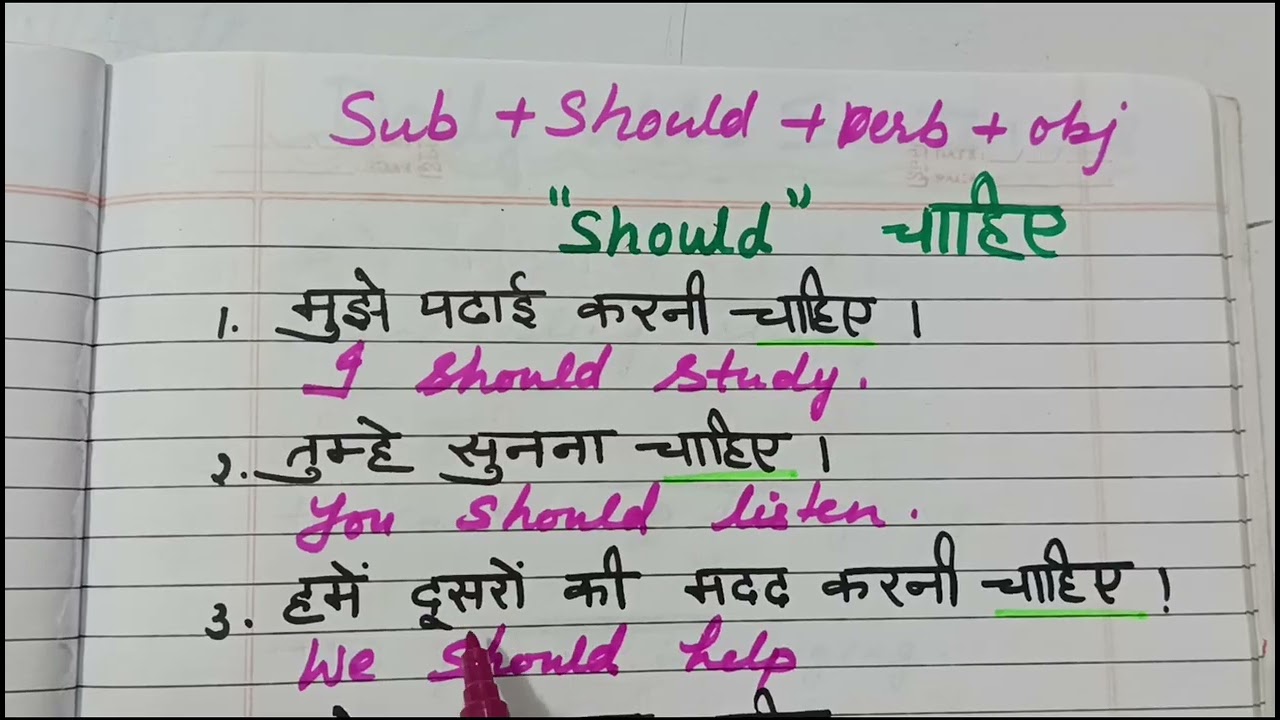 Sub + Should + Verb + obj
"Should" चाहिए
1. मुझे पढाई करनी चाहिए ।
I should study.
२. तुम्हे सुनना चाहिए ।
You should listen.
3. हमें दूसरों की मदद करनी चाहिए !
We should help